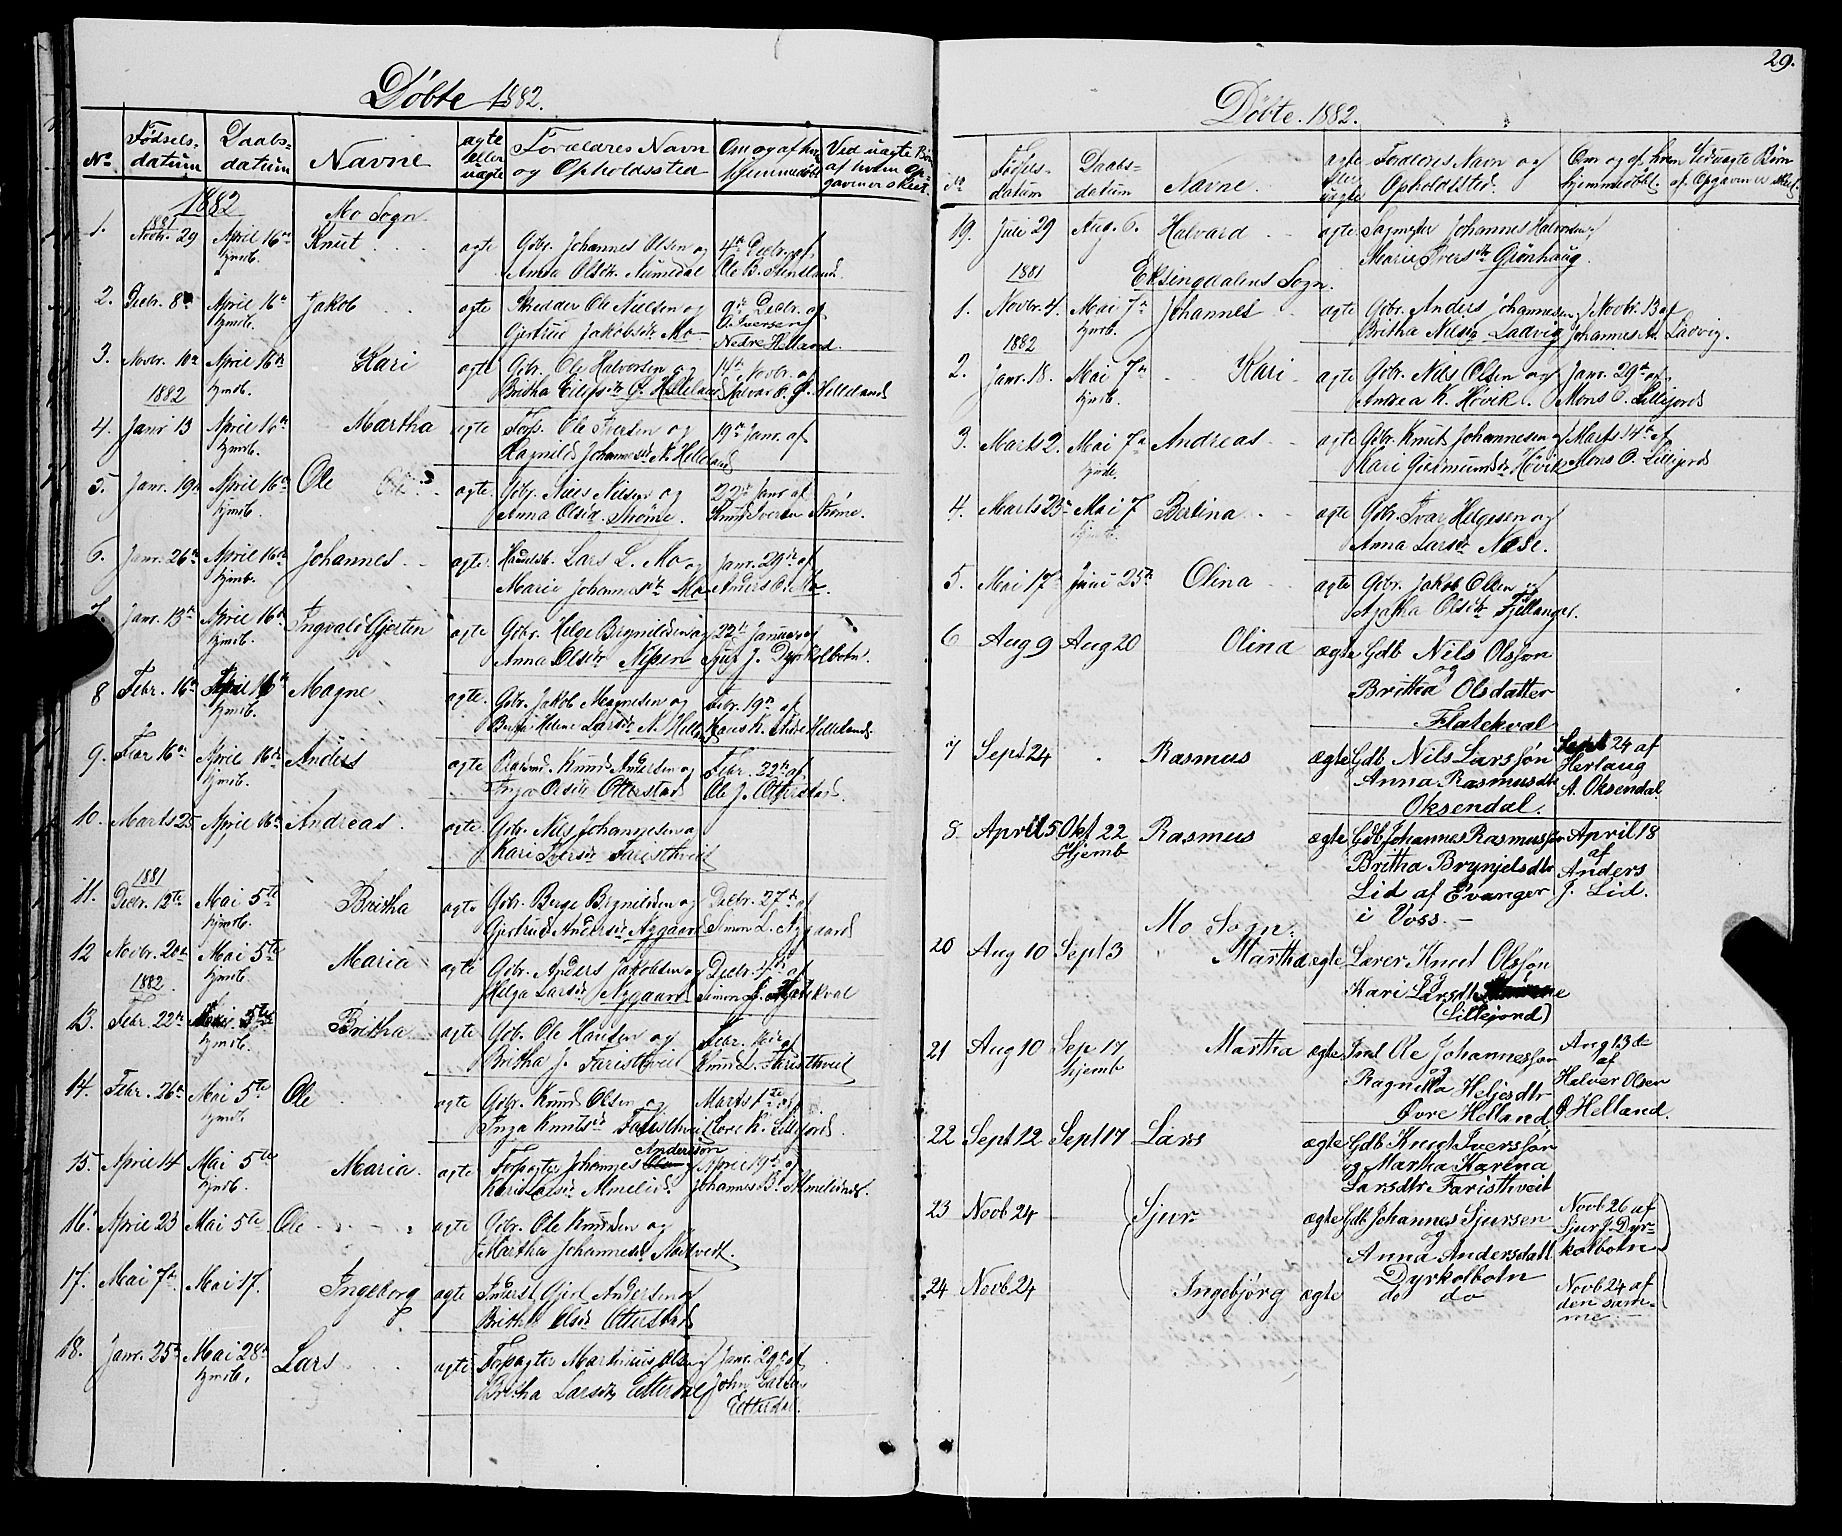 Döbte 1882.
No Fødsels-datum Daabs-datum Navne ægte eller uægte Forældres Navn og Opholdssted Om og af hvem hjemmedøbt Ved uægte Børn af hvem Opgaven er skeet
1882
Mo Sogn
1881
1. Novbr. 29 April 16de Knut ægte Gbr. Johannes Olsen og 4de Decbr. af
hjmdb. Anna Olsdtr. Numedal Ole B.
2. Decbr. 8de April 16de Jakob ægte Skrædder Ole Nielsen og 9de Decbr. af
hjmdb. Gjertrud Jakobsdtr. Mo O. Iversen
Nedre Helland.
3. Novbr. 10de April 16de Kari ægte Gbr. Ole Halvorsen og 14de Novbr. af
1882 hjmdb. Britha Eilifsdtr. Ø. Helleland Halvar O. Ø. Helleland
4. Janr 13 April 16de Martha ægte Forp. Ole Iversen og 19de Janr. af
hjmdb. Ragnild Johannesdtr. N. Helleland
5. Janr. 19de April 16de Ole ægte Gbr. Niels Nilsen og 22de Janr af
hjmdb. Anna Olsdtr. Strøme. Knud Iversen Strøme.
6. Janr. 26de April 16de Johannes ægte Handelsb. Lars L. Mo og Janr. 29de af
hjmdb. Marie Johannesdtr. Mo Anders O. Mo.
7. Janr. 13de April 16de Ingvald Gjerten ægte Gbr. Helge Brynildsen og 22de Januar af
hjmdb. Anna Olsdtr. Nipen Sjur J. Dyrkolbotn.
8 Febr. 16de April 16de Magne ægte Gbr. Jakob Magnesen og Febr. 19de af
hjmdb. Bertha Helene Larsdtr. N. Helland Hans K. Nedre Helleland
9. Febr 16de April 16de Anders ægte Knud Andersen og Febr. 22de af
hjmdb. Inga Olsdtr. Otterstad Ole J. Otterstad.
10. Marts 25 April 16de Andreas. ægte Gbr. Nils Johannesen og
Kari Iversdtr. Faristhveit
1881
11. Decbr. 12te Mai 5te Britha ægte Gbr. Berge Brynildsen og Decbr. 27de af
hjmdb. Gjertrud Andersdtr. Nygaard Simon L. Nygaard
12 Novbr. 20de Mai 5te Maria ægte Gbr. Anders Jakobsen og Decbr. 4de af
1882. hjmdb. Helga Larsdtr. Nygaard Simon
13. Febr. 22de Mai 5te Britha ægte Gbr. Ole Hansen og Febr. af
hjmdb. Britha J. Faristhveit Knud L. Faristhveit
14. Febr. 26de Mai 5te Ole ægte Gbr. Knud Olsen og Marts 1ste af
hjmdb. Inga Knutsdtr. Faristhveit K. Lillefjord.
15. April 14 Mai 5te Maria. ægte Forpagter Johannes Anderssøn og April 19de af
hjmdb. Kari Larsdtr. Almelid. Johannes B. Almelid.
16. April 23 Mai 5te Ole ægte Gbr. Ole Knudsen og
Martha Johannesdtr. Markveit.
17. Mai 7de Mai 17. Ingeborg ægte Inderst Gjert Andersen og
Britha Olsdtr. Otterstad
18. Janr. 25de Mai 28de Lars ægte Forpagter Martinus Olsen og Janr. 29de af
hjmdb. Britha Larsdtr. Etterdal John
Etterdal.
29.
Döbte. 1882.
No Fødsels-datum Daabs-datum Navne. ægte eller uægte Forældres Navn og Opholdssted. Om og af hvem hjemmedøbt. Ved uægte Børn af Opgaven er skeet.
19. Juli 29 Aug. 6. Halvard ægte Sagmester Johannes Halvorsen og
Marie Iversdtr. Grønhaug.
1881 Eksingdalens Sogn.
1. Novbr. 4. Mai 7de Johannes ægte Gbr. Anders Johannesen og Novbr. 13 af
1882 hjmdb. Britha Nilsdtr. Ladvig Johannes A. Ladvig.
2. Janr. 18. Mai 7de Kari ægte Gbr. Nils Olsen og Janr. 29de af
hjmdb. Andrea K. Høvik. Mons O. Lillefjord
3. Marts 2. Mai 7de Andreas ægte Gbr. Knut Johannesen og Marts 14de af
hjmdb. Kari Gudmundsdtr. Høvik Mons O. Lillefjord
4. Marts 23de Mai 7 Bertina ægte Gbr. Ivar Helgesen og
hjmdb. Anna Larsdtr. Nese.
5. Mai 17de Juni 25de Olina ægte Gbr. Jakob Olsen og
Agatha Olsdtr. Fjellanger.
6 Aug 9 Aug 20 Olina ægte Gdb Nils Olsøn
og
Britha Olsdatter
Flatekval
7 Sept 24 Rasmus ægte Gdb Nils Larssøn Sept 24 af
Anna Rasmusdtr Herlaug
Oksendal. A. Oksendal
8. April 5 Okt 22 Rasmus ægte Gdb Johannes Rasmussøn April 18
Hjemb Britha Brynjelsdtr af
Lid af Evanger Anders
i Voss. J. Lid.
Mo Sogn.
20 Aug 10 Sept 3 Martha ægte Lærer Knut Olssøn
og
Kari Larsdtr
(Lillejord)
21 Aug 10 Sep 17 Martha ægte Inst Ole Johannessøn Aug 13de
hjemb og af
Ragnilla Heljesdtr Halver Olsen
Øvre Helland Ø Helland.
22 Sept 12 Sept 17 Lars ægte Gdb Knut Iverssøn
og Martha Karena
Larsdtr Faristhveit
23 Novb 24 Sjur ægte Gdb Johannes Sjursen Novb 26 af
og Sjur J. Dyr-
Anna Andersdatt kolbotn
Dyrkolbotn
24 Novb 24 Ingebjørg ægte do do Novb 24 af
den sam-
me